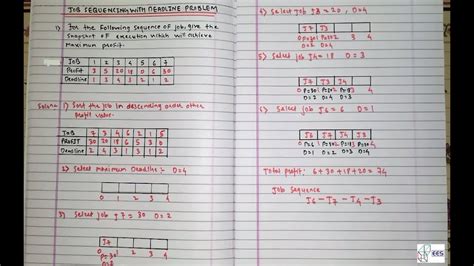 JOB SEQUENCING WITH DEADLINE PROBLEM
1) For the following sequence of job, give the
snapshot of execution which will achieve
maximum profit.
JOB 1 2 3 4 5 6 7
Profit 3 5 20 18 0 6 30
Deadline 1 3 4 3 2 1 2
Soln:- 1) Sort the job in descending order other
profit value.
JOB 7 3 4 6 2 1 5
PROFIT 30 20 18 6 5 3 0
Deadline 2 4 3 1 3 1 2
2) Select maximum Deadline:- D=4
0 1 2 3 4
3) Select job J7=30 D=2
J7
0 P=30 2 3 4
D=2
4) Select job J3=20, D=4
J7 J3
0 P=30 P=20 4
D=2 D=4
5) Select job J4=18 D=3
J7 J4 J3
0 P=30 P=18 P=20 4
D=2 D=3 D=4
6) Select job J6=6 D=1
J6 J7 J4 J3
0 P=6 P=30 P=18 P=20 4
D=1 D=2 D=3 D=4
Total profit: 6+30+18+20=74
Job Sequence
J6-J7-J4-J3
EES